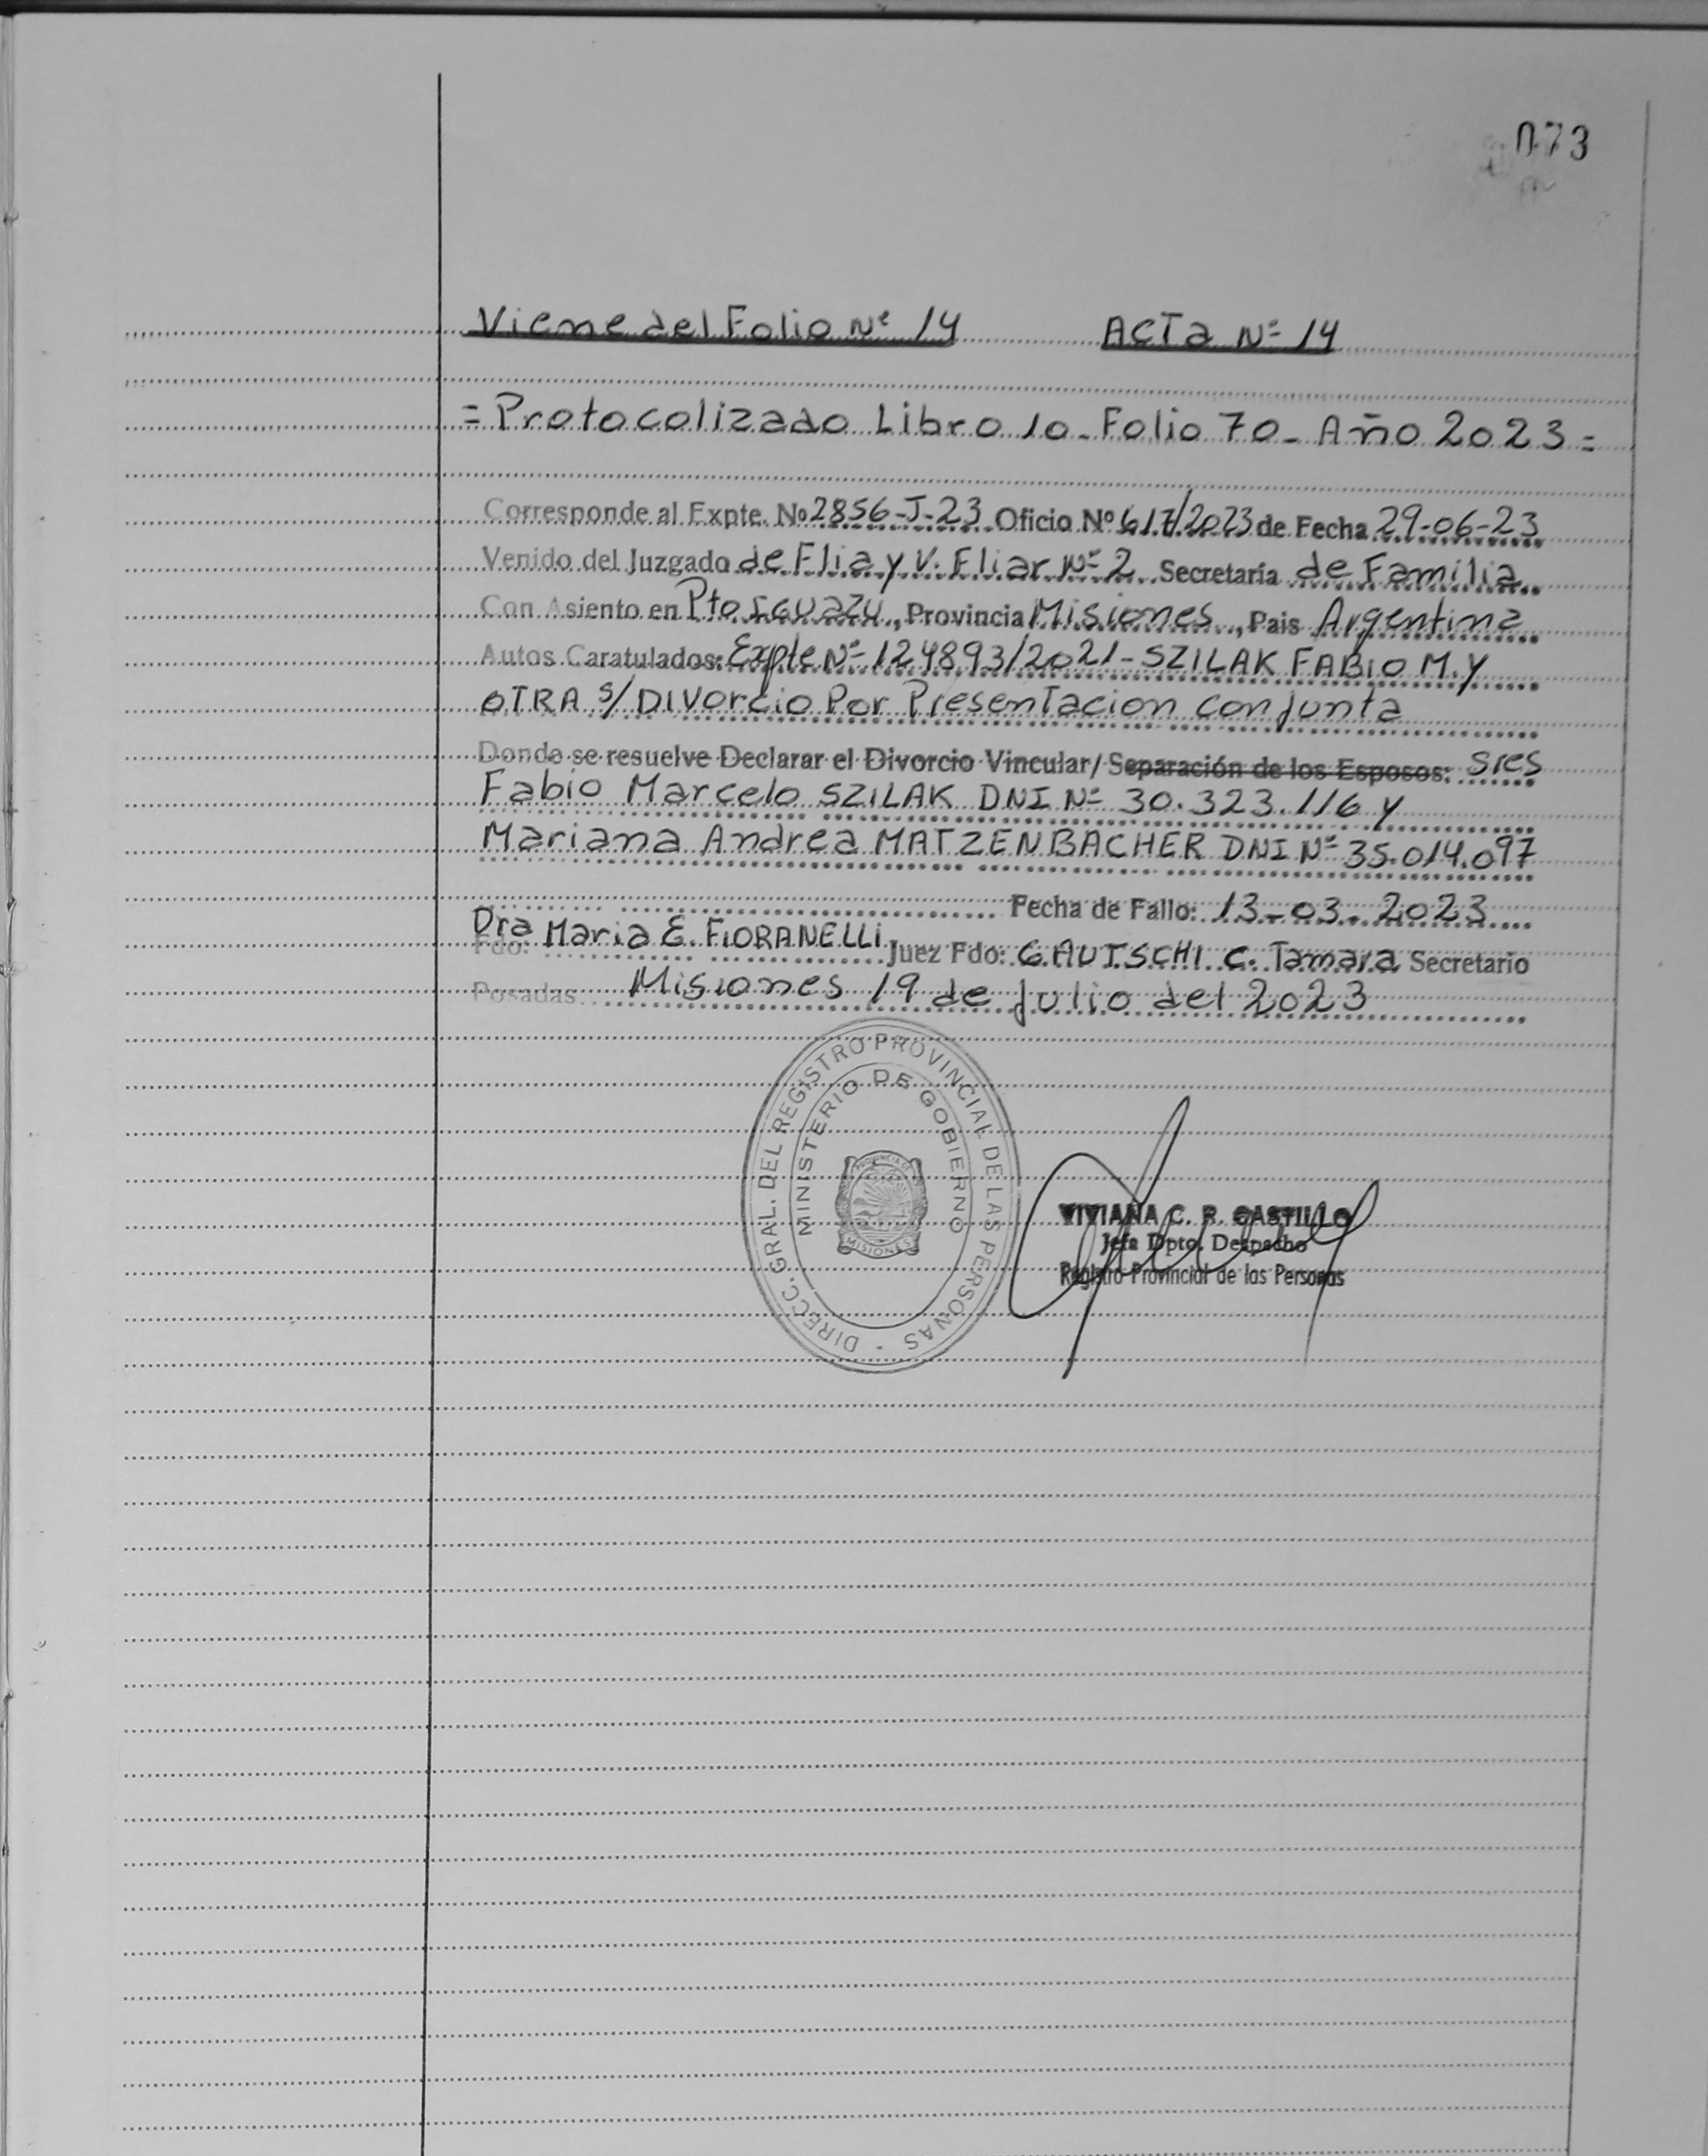 073
Viene del Folio Nº 14 ACTA Nº 14
= Protocolizado Libro 10 - Folio 70 - Año 2023 =
Corresponde al Expte. Nº 2856-J-23 Oficio Nº 617/2023 de Fecha 29-06-23
Venido del Juzgado de Flia y V. Fliar Nº 2 Secretaría de Familia
Con Asiento en Pto Iguazu, Provincia Misiones, Pais Argentina
Autos Caratulados: Expte Nº 124893/2021 - SZILAK FABIO M. y
OTRA s/ DIVorcio Por Presentacion conjunta
Donde se resuelve Declarar el Divorcio Vincular/ Separación de los Esposos: sres
Fabio Marcelo SZILAK DNI Nº 30.323.116 y
Mariana Andrea MATZENBACHER DNI Nº 35.014.097
Fecha de Fallo: 13-03-2023
Fdo: Dra Maria E. FIORANELLI Juez Fdo: GAUTSCHI C. Tamara Secretario
Posadas Misiones 19 de julio del 2023
DIRECC. GRAL. DEL REGISTRO PROVINCIAL DE LAS PERSONAS
MINISTERIO DE GOBIERNO
PROVINCIA DE
MISIONES
VIVIANA C. R. CASTILLO
Jefa Dpto. Despacho
Registro Provincial de las Personas